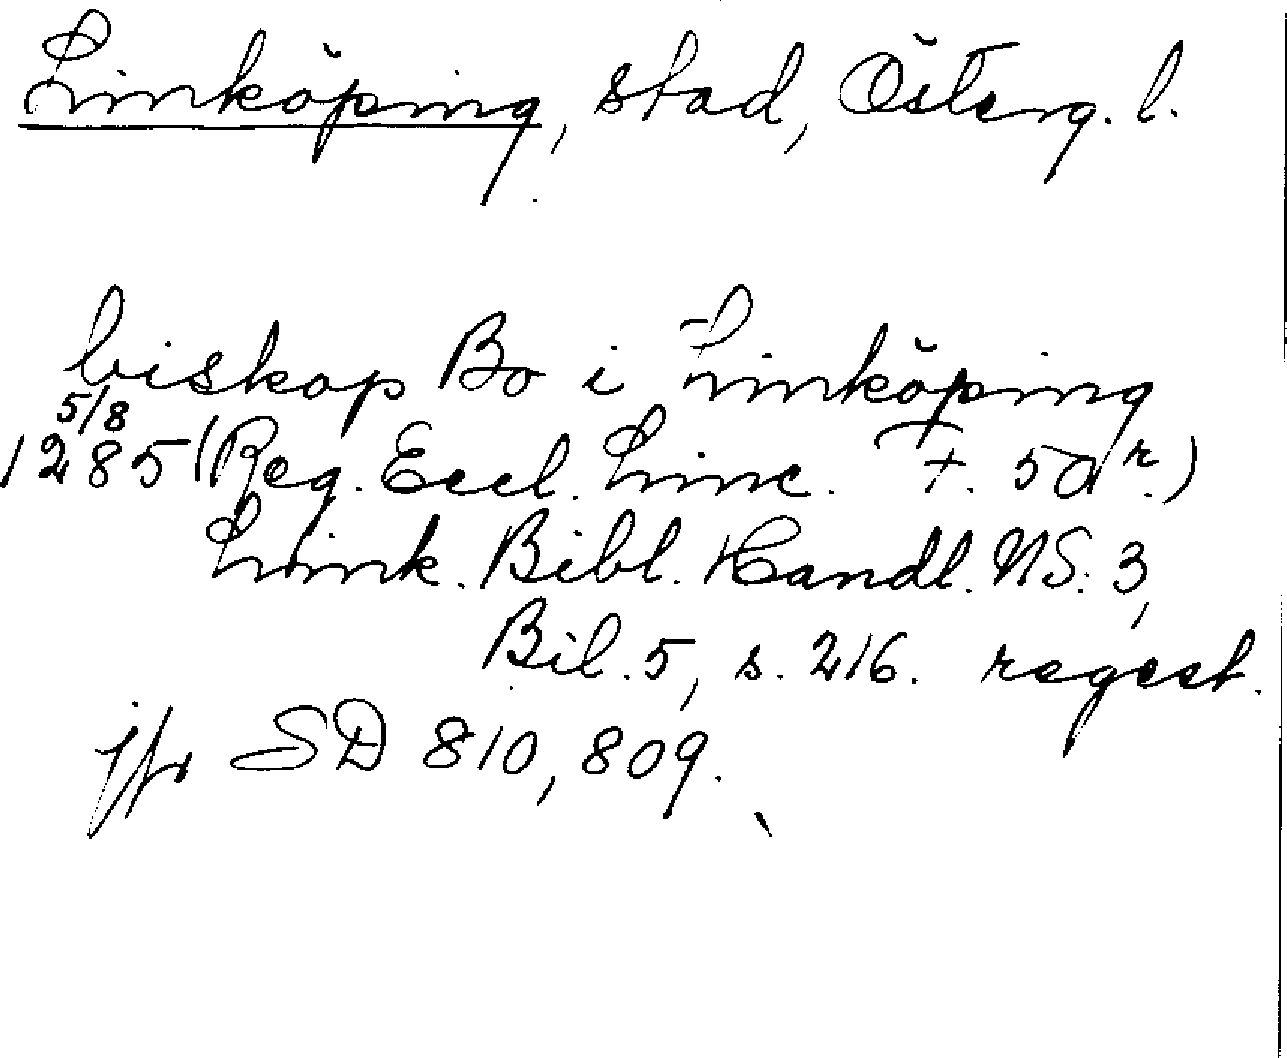 Linköping, stad, Österg. l.
biskop Bo i Linköping
5/8
1285 (Reg. Eccl. Linc. F. 50 r.)
Link. Bibl. Handl. NS. 3,
Bil. 5, s. 216. regest.
jfr SD 810, 809.